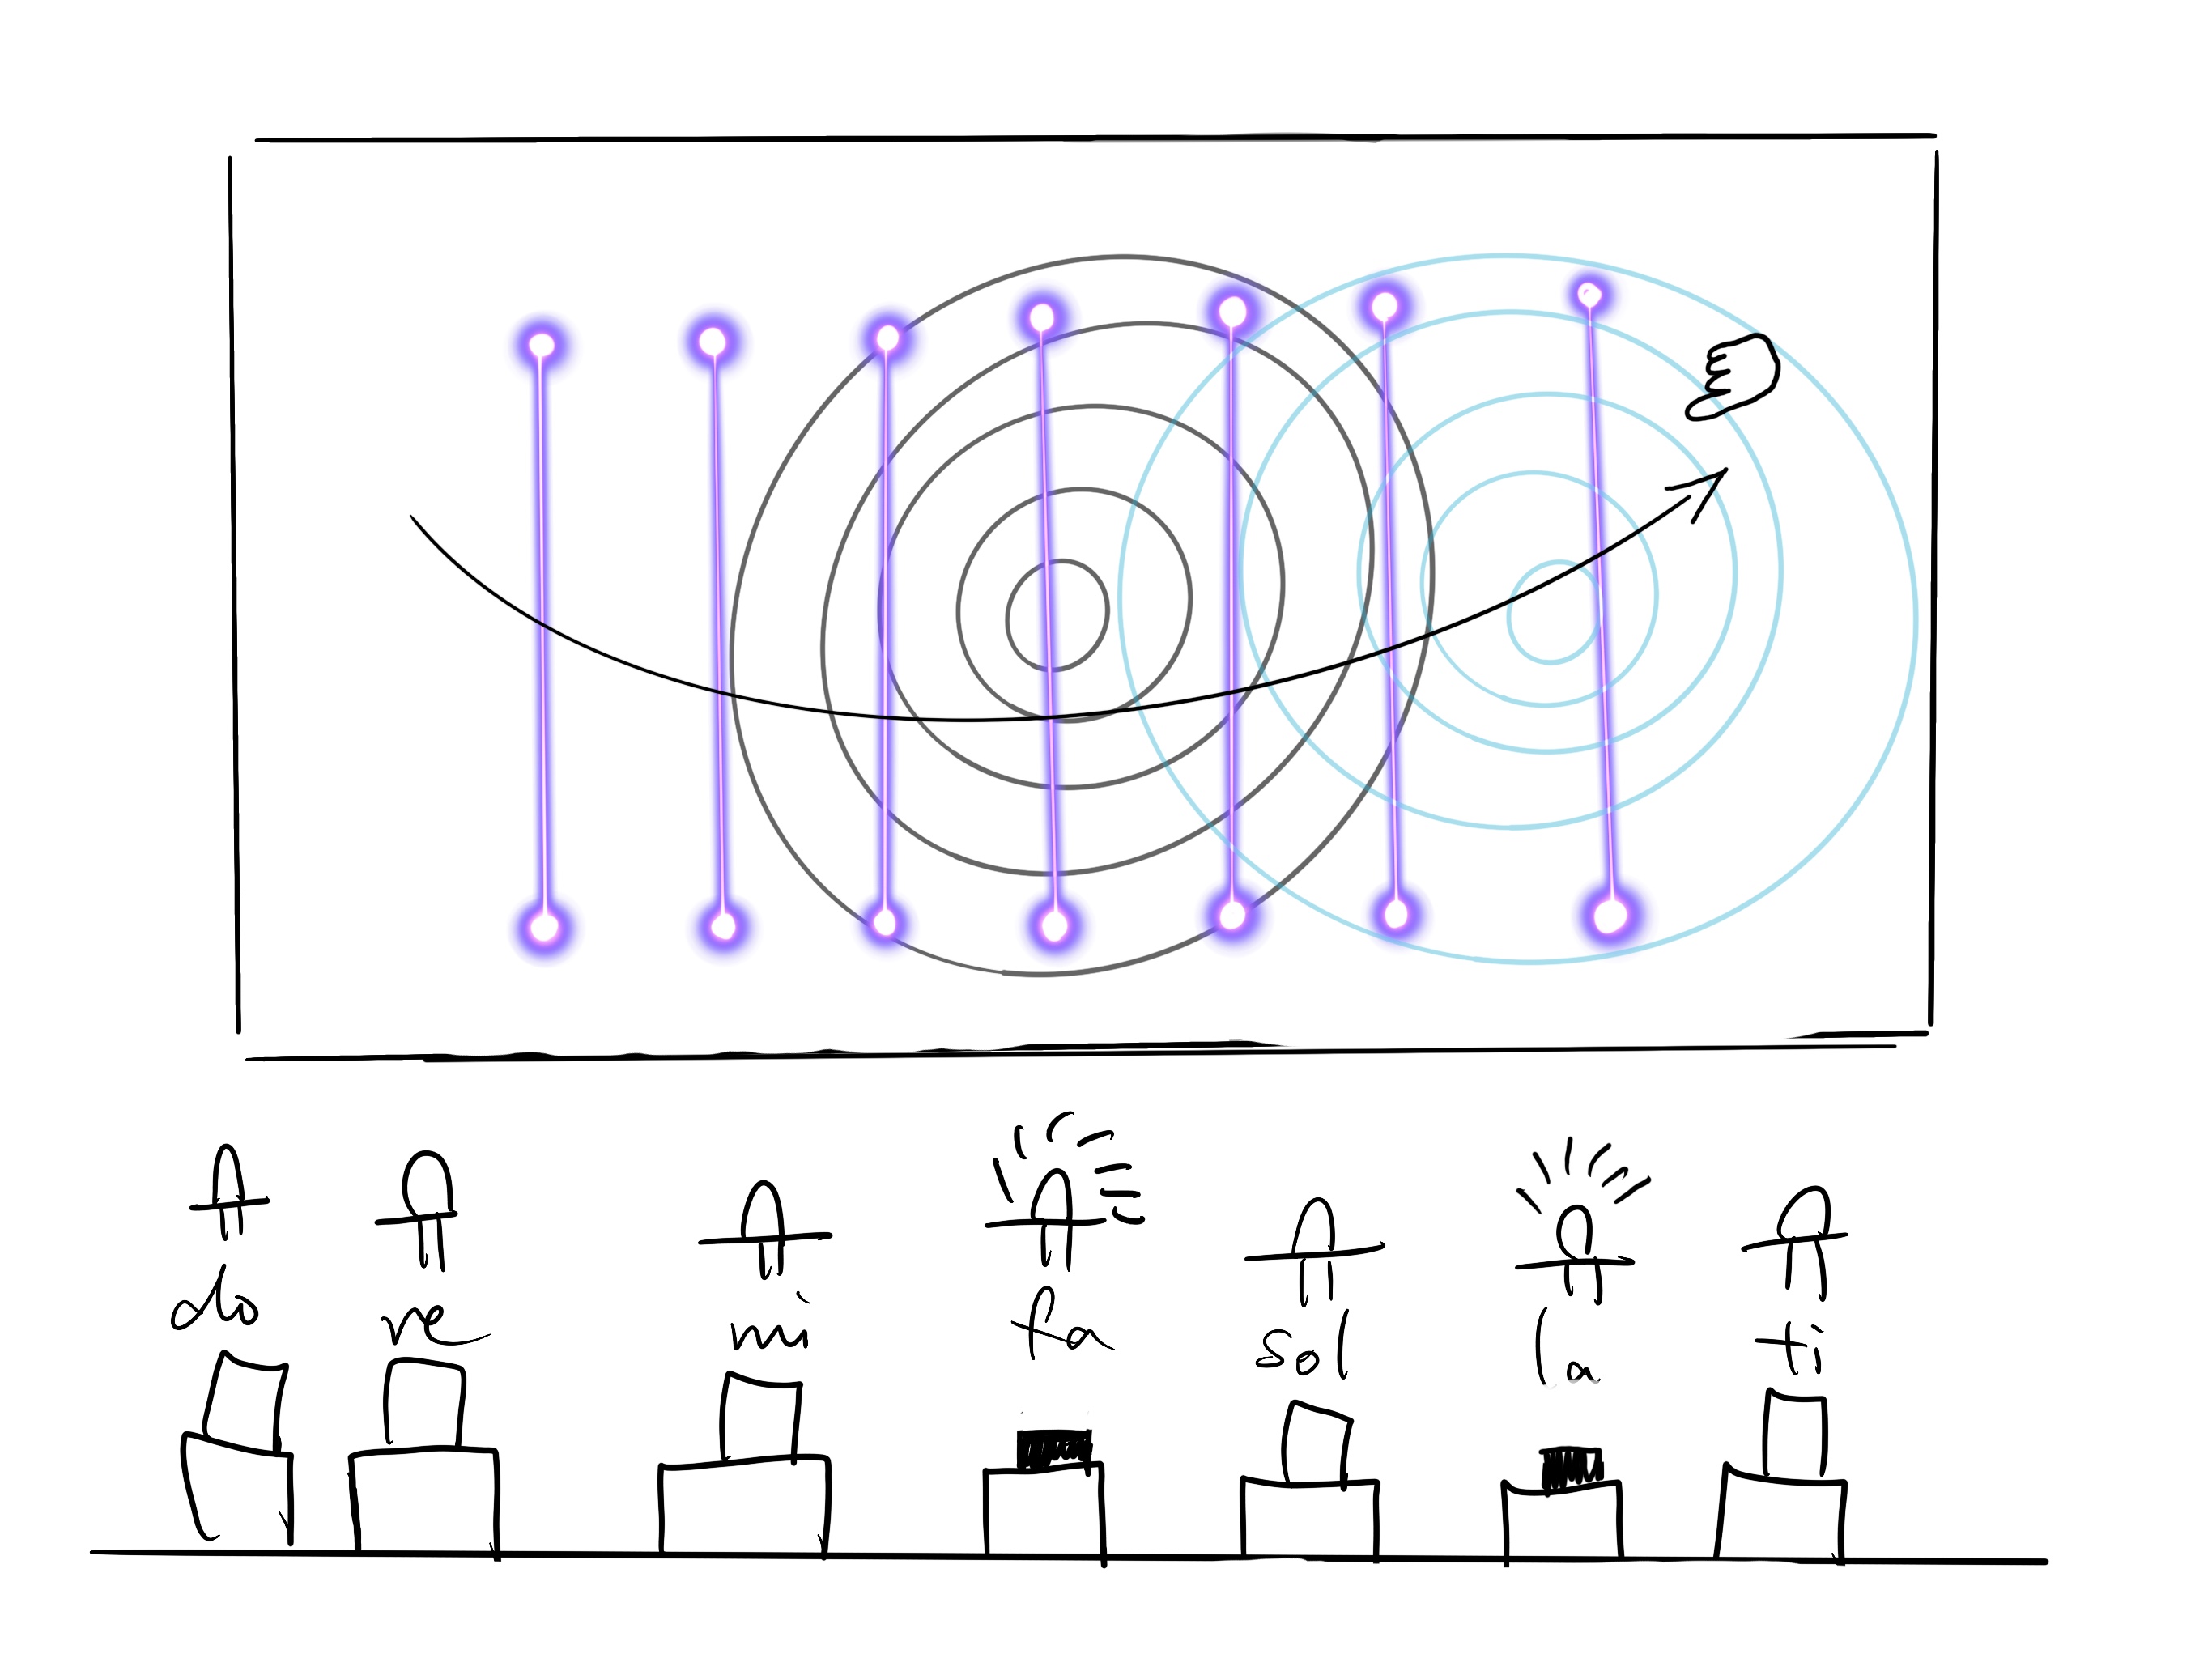 do re mi fa sol la ti